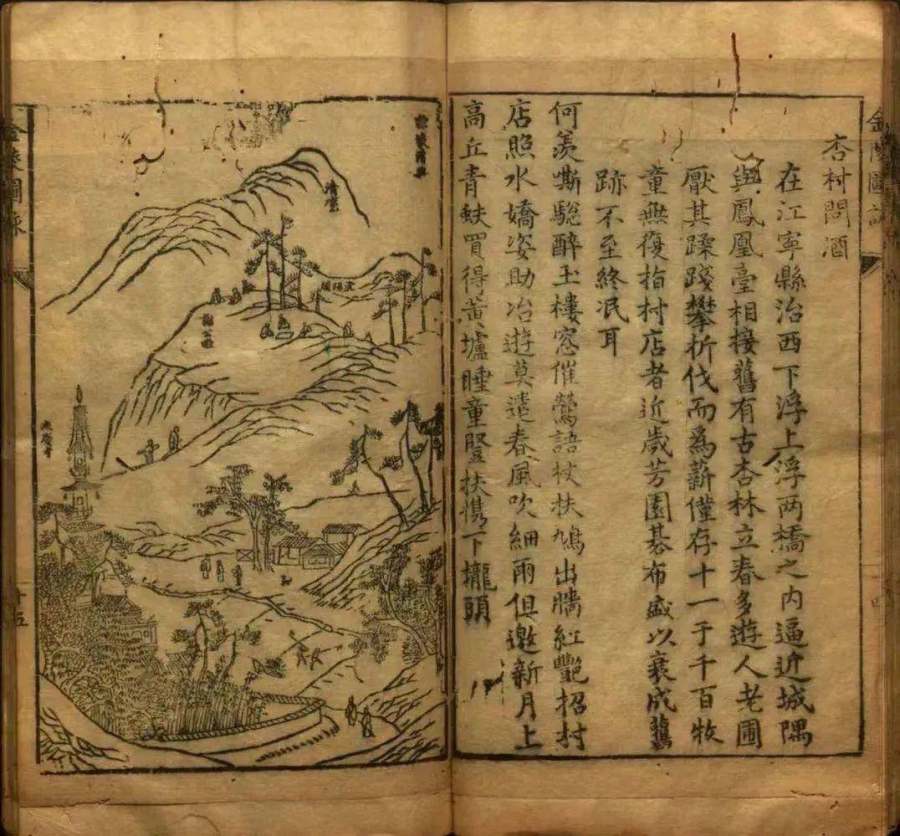 杏村問酒
在江寧縣治西下浮上浮两橋之内逼近城隅
與鳳凰臺相接舊有古杏林立春多遊人老圃
厭其蹂踐攀折伐而爲薪僅存十一于千百牧
童無復指村店者近歲芳園碁布盛以衰成舊
跡不至終泯耳
何羨嘶驄醉玉樓窓催鶯語杖扶鳩出牆紅艷招村
店照水嬌姿助冶遊莫遣春風吹細雨但邀新月上
高丘青蚨買得黃壚睡童豎扶携下壠頭
金陵圖詠
清凉
謝公墩
十五